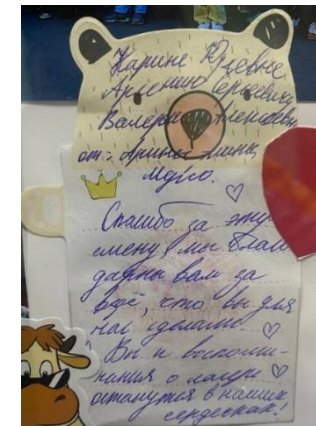 Карине Юрьевне
Арсению Сергеевичу
Валерии Алексеевне
от: Арины
Спасибо за эту
смену, мы благо
дарны вам за
всё, что вы для
нас сделали ♡
Вы и воспоми-
нания о лагере ♡
останутся в наших
сердечках!